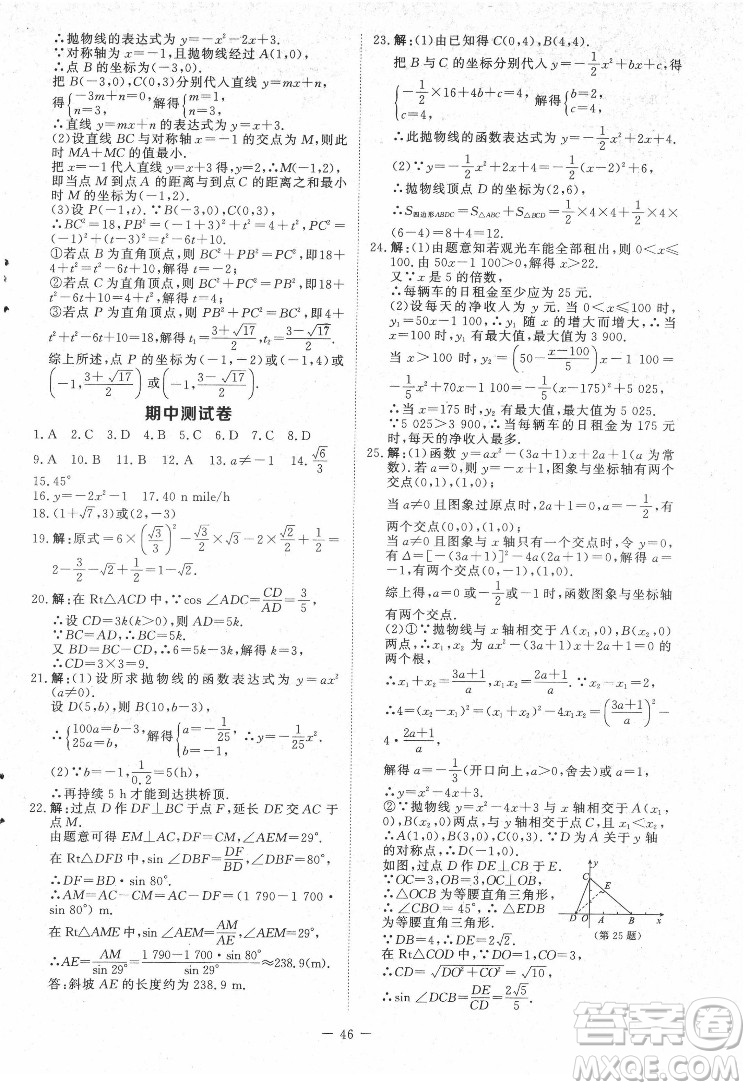 ∴抛物线的表达式为 y=-x²-2x+3.
∵对称轴为 x=-1,且抛物线经过 A(1,0),
∴点 B 的坐标为(-3,0).
把 B(-3,0),C(0,3)分别代入直线 y=mx+n,
得{-3m+n=0, n=3, 解得{m=1, n=3.
∴直线 y=mx+n 的表达式为 y=x+3.
(2)设直线 BC 与对称轴 x=-1 的交点为 M,则此
时 MA+MC 的值最小.
把 x=-1 代入直线 y=x+3,得 y=2,∴M(-1,2),
即当点 M 到点 A 的距离与到点 C 的距离之和最
小时 M 的坐标为(-1,2).
(3)设 P(-1,t). ∵B(-3,0),C(0,3),
∴BC²=18,PB²=4+t²,PC²=t²-6t+10.
①若点 B 为直角顶点,则 BC²+PB²=PC²,即18+
4+t²=t²-6t+10,解得 t=-2;
②若点 C 为直角顶点,则 BC²+PC²=PB²,即18+
t²-6t+10=4+t²,解得 t=4;
③若点 P 为直角顶点,则 PB²+PC²=BC²,即4+
t²+t²-6t+10=18,解得 t₁=(3+√17)/2,t₂=(3-√17)/2.
综上所述,点 P 的坐标为(-1,-2)或(-1,4)或
(-1,(3+√17)/2)或(-1,(3-√17)/2).
期中测试卷
1. A 2. C 3. D 4. A 5. C 6. D 7. C 8. D
9. A 10. B 11. B 12. A 13. a≠-1 14. √6/3
15. 45°
16. y=-2x²-1 17. 40 n mile/h
18. (1+√7,3)或(2,-3)
19. 解:原式=6×(√3/3)²-√3×√3/2-2×√2/2+1/2=
2-3/2-√2+1/2=1-√2.
20. 解:在 Rt△ACD 中,∵cos ∠ADC=CD/AD=3/5,
∴设 CD=3k(k>0),则 AD=5k.
∵BC=AD,∴BC=5k.
又 BD=BC-CD,∴5k-3k=6,解得 k=3.
∴CD=3×3=9.
21. 解:(1)设所求抛物线的函数表达式为 y=ax²
(a≠0).
设 D(5,b),则 B(10,b-3),
∴{100a=b-3, 25a=b, 解得{a=-1/25, b=-1. ∴y=-1/25x².
(2)∵b=-1,∴1/0.2=5(h),
∴再持续 5 h 才能到达拱桥顶.
22. 解:过点 D 作 DF⊥BC 于点 F,延长 DE 交 AC 于
点 M.
由题意可得 EM⊥AC,DF=CM,∠AEM=29°.
在 Rt△DFB 中,sin ∠DBF=DF/BD,∠DBF=80°,
∴DF=BD·sin 80°.
∴AM=AC-CM=AC-DF=(1 790-1 700·
sin 80°)m.
在 Rt△AME 中,sin ∠AEM=AM/AE,∠AEM=29°,
∴AE=AM/sin 29°=(1 790-1 700·sin 80°)/sin 29°≈238.9(m).
答:斜坡 AE 的长度约为 238.9 m.
23. 解:(1)由已知得 C(0,4),B(4,4).
把 B 与 C 的坐标分别代入 y=-1/2x²+bx+c,得
{-1/2×16+4b+c=4, c=4, 解得{b=2, c=4.
∴此抛物线的函数表达式为 y=-1/2x²+2x+4.
(2)∵y=-1/2x²+2x+4=-1/2(x-2)²+6,
∴抛物线顶点 D 的坐标为(2,6),
∴S四边形ABDC=S△ABC+S△BCD=1/2×4×4+1/2×4×
(6-4)=8+4=12.
24. 解:(1)由题意知若观光车能全部租出,则 0<x≤
100. 由 50x-1 100>0,解得 x>22.
又∵x 是 5 的倍数,
∴每辆车的日租金至少应为 25 元.
(2)设每天的净收入为 y 元. 当 0<x≤100 时,
y₁=50x-1 100,∴y₁ 随 x 的增大而增大,∴当
x=100时,y₁ 有最大值,最大值为 3 900.
当 x>100 时,y₂=(50-(x-100)/5)x-1 100=
-1/5x²+70x-1 100=-1/5(x-175)²+5 025,
∴当 x=175 时,y₂ 有最大值,最大值为 5 025.
∵5 025>3 900,∴当每辆车的日租金为 175 元
时,每天的净收入最多.
25. 解:(1)函数 y=ax²-(3a+1)x+2a+1(a 为常
数). 若 a=0,则 y=-x+1,图象与坐标轴有两个
交点(0,1),(1,0);
当 a≠0 且图象过原点时,2a+1=0,a=-1/2,有
两个交点(0,0),(1,0);
当 a≠0 且图象与 x 轴只有一个交点时,令 y=0,
有 Δ=[-(3a+1)]²-4a(2a+1)=0,解得 a=-1,
有两个交点(0,-1),(1,0).
综上得,a=0或-1或-1/2时,函数图象与坐标轴
有两个交点.
(2)①∵抛物线与 x 轴相交于 A(x₁,0),B(x₂,0)
两点,∴x₁,x₂ 为 ax²-(3a+1)x+2a+1=0 的
两个根,
∴x₁+x₂=(3a+1)/a,x₁x₂=(2a+1)/a. ∵x₂-x₁=2,
∴4=(x₂-x₁)²=(x₁+x₂)²-4x₁x₂=((3a+1)/a)²-
4·(2a+1)/a.
解得 a=-1/3(开口向上,a>0,舍去)或 a=1.
②∵抛物线 y=x²-4x+3 与 x 轴相交于 A(x₁,
0),B(x₂,0)两点,与 y 轴相交于点 C,且 x₂>x₁,
∴A(1,0),B(3,0),C(0,3). ∵D 为 A 关于 y 轴
的对称点,∴D(-1,0).
如图,过点 D 作 DE⊥CB 于 E.
∵OC=3,OB=3,OC⊥OB,
∴△OCB 为等腰直角三角形.
∴∠CBO=45°,∴△EDB
为等腰直角三角形.
∵DB=4,∴DE=2√2.
在 Rt△COD 中,∵DO=1,CO=3,
∴CD=√(DO²+CO²)=√10,
∴sin ∠DCB=DE/CD=2√5/5.
y
C
E
D O B x
(第 25 题)
— 46 —
答案圈
MXQE.COM